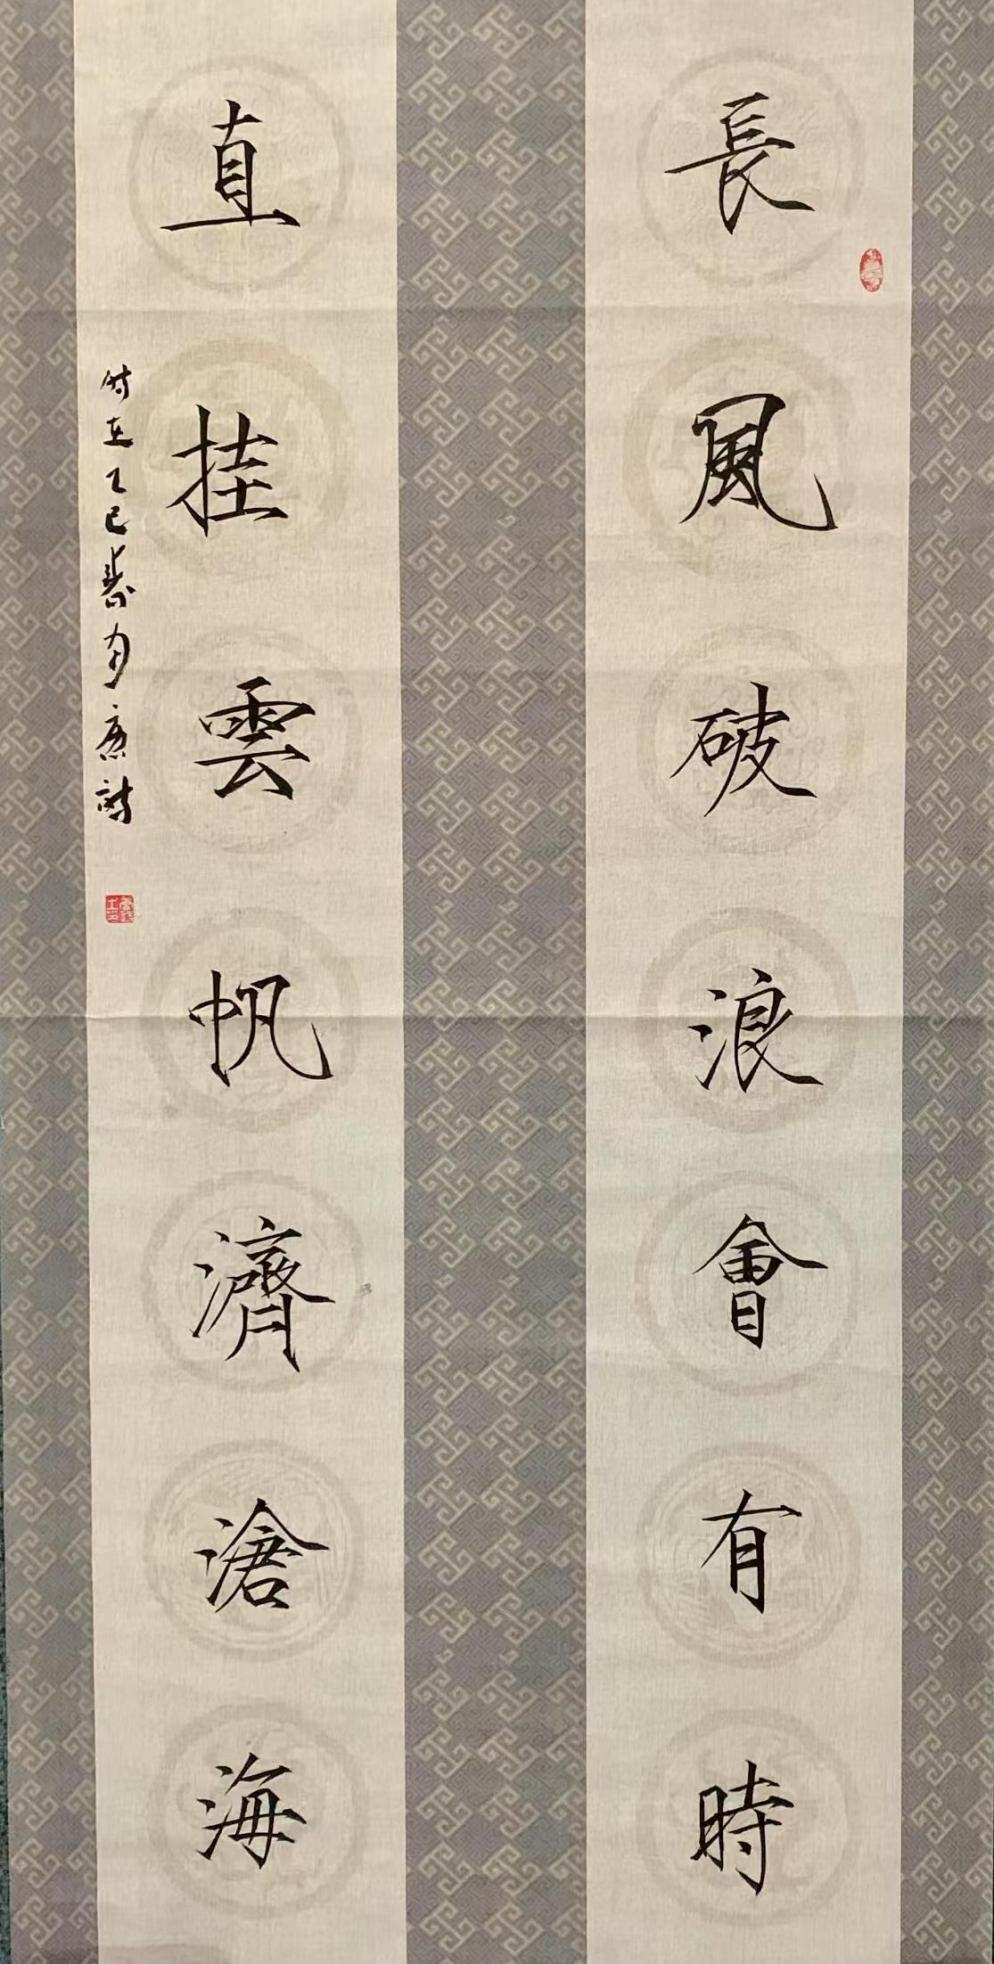 長風破浪會有時
直挂雲帆濟滄海
時在乙巳